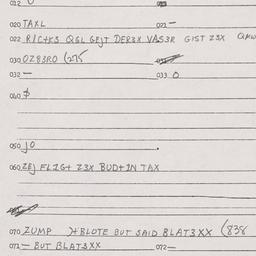 012
020 TAXL 021 —
022 R/C+KS QSL GEJT DER3X VAS3R GIST Z3X
030 OZ83RO (275
032 — 033 0
040 $
050 JO
060 ZEJ FLIG+ Z3X BUD+IN TAX
070 ZUMP )+BLOTE BUT SAID BLAT3XX (838
071 — BUT BLAT3XX 072 —